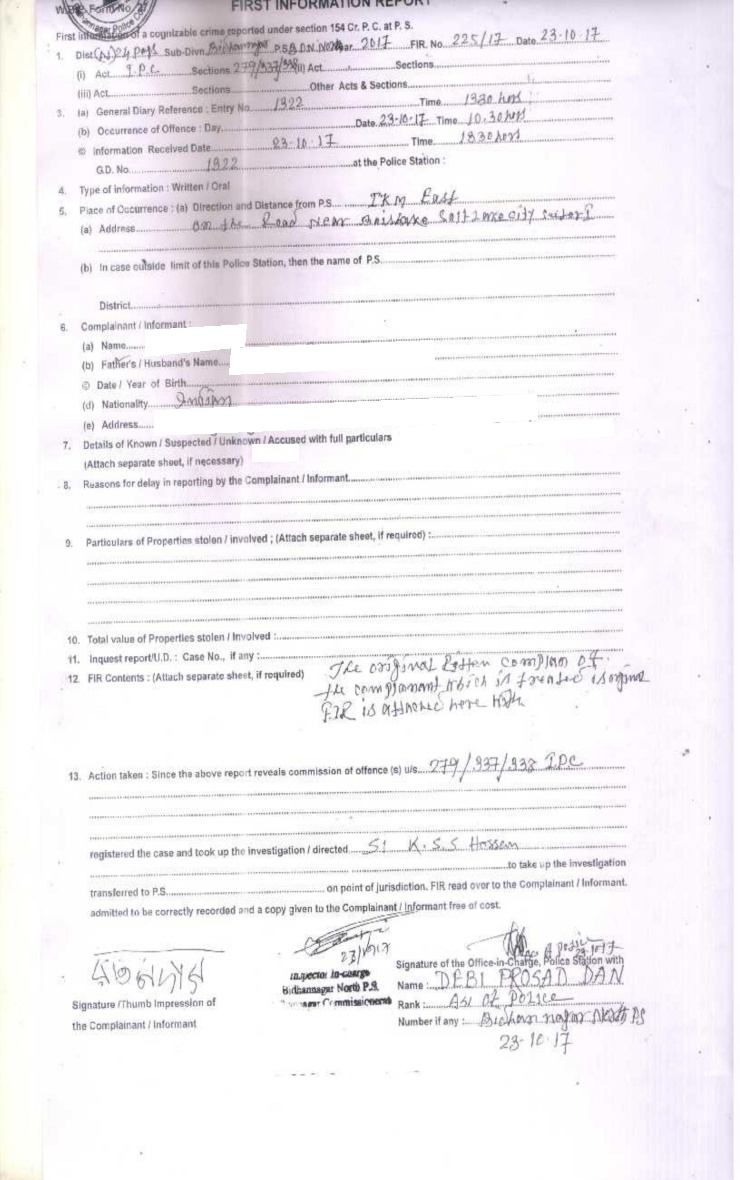 FIRST INFORMATION REPORT
W.B. Form No. 27
First information of a cognizable crime reported under section 154 Cr. P. C. at P. S.
1. Dist (N) 24 Pgs Sub-Divn. Bidhannagar P.S. B.D.N. North Year 2017 FIR. No. 225/17 Date 23-10-17
(i) Act I.P.C Sections 279/337/338 (ii) Act Sections
(iii) Act Sections Other Acts & Sections
3. (a) General Diary Reference : Entry No 1322 Time 1830 hrs
(b) Occurrence of Offence : Day Date 23-10-17 Time 10.30 hrs
© Information Received Date 23-10-17 Time 1830 hrs
G.D. No. 1322 at the Police Station :
4. Type of information : Written / Oral
5. Place of Occurrence : (a) Direction and Distance from P.S. 1 KM East
(a) Address on the Road Near Salt Lake City
(b) In case outside limit of this Police Station, then the name of P.S.
District
6. Complainant / Informant :
(a) Name
(b) Father's / Husband's Name
© Date / Year of Birth
(d) Nationality Indian
(e) Address
7. Details of Known / Suspected / Unknown / Accused with full particulars
(Attach separate sheet, if necessary)
8. Reasons for delay in reporting by the Complainant / Informant
9. Particulars of Properties stolen / involved ; (Attach separate sheet, if required) :
10. Total value of Properties stolen / Involved :
11. Inquest report/U.D. : Case No., if any :
12 FIR Contents : (Attach separate sheet, if required)
The original complain of
the complainant which is treated
FIR is attached here with
13. Action taken : Since the above report reveals commission of offence (s) u/s. 279/337/338 IPC
registered the case and took up the investigation / directed SI K.S.S Hossen
to take up the investigation
transferred to P.S. on point of jurisdiction. FIR read over to the Complainant / Informant.
admitted to be correctly recorded and a copy given to the Complainant / Informant free of cost.
23/10/17
Inspector in-charge
Bidhannagar North P.S.
Commissionerate
Signature /Thumb Impression of
the Complainant / Informant
23-10-17
Signature of the Office-in-Charge, Police Station with
Name : DEBI PROSAD DAN
Rank : ASI of Police
Number if any : Bidhannagar North PS
23-10-17